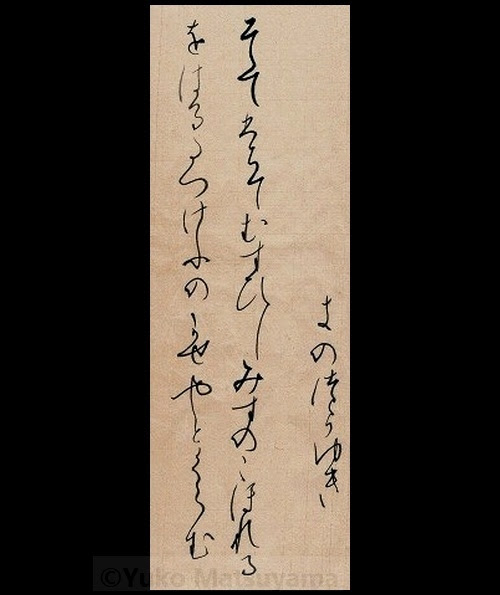 きの徒らゆき
そてひちてむすひしみすのこほれる
をはるたつけふのかせやとくらむ
©Yuko Matsuyama